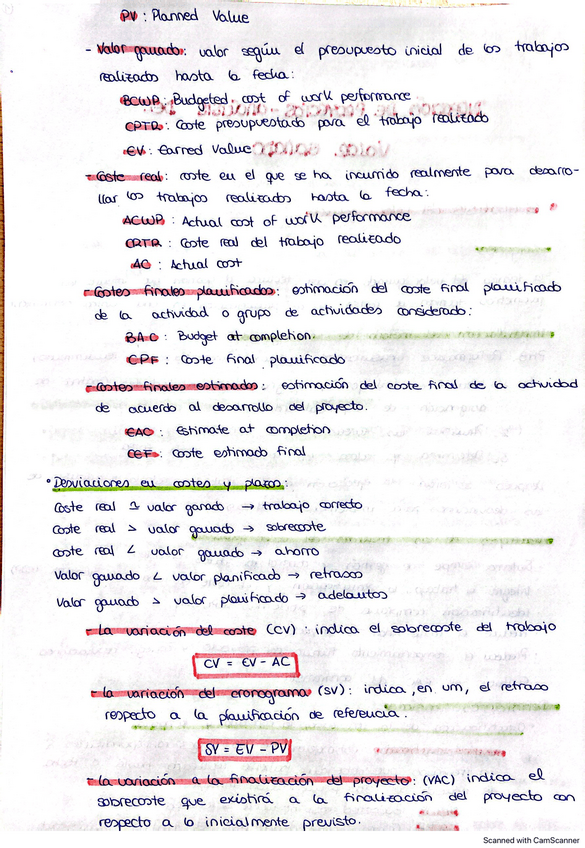 PV : Planned Value
- Valor ganado: valor según el presupuesto inicial de los trabajos
realizados hasta la fecha:
BCWP: Budgeted cost of work performance
CPTR: Coste presupuestado para el trabajo realizado
EV: Earned Value
- Coste real: coste en el que se ha incurrido realmente para desarro-
llar los trabajos realizados hasta la fecha:
ACWP : Actual cost of work performance
CRTR : Coste real del trabajo realizado
AC : Actual cost
- Costes finales planificados: estimación del coste final planificado
de la actividad o grupo de actividades considerado:
BAC : Budget at completion
CPF : Coste final planificado
- Costes finales estimados: estimación del coste final de la actividad
de acuerdo al desarrollo del proyecto.
EAC : Estimate at completion
CEF : Coste estimado final
• Desviaciones en costes y plazos:
Coste real = valor ganado → trabajo correcto
Coste real > valor ganado → sobrecoste
coste real < valor ganado → ahorro
Valor ganado < valor planificado → retrasos
Valor ganado > valor planificado → adelantos
- La variación del coste (CV) : indica el sobrecoste del trabajo
CV = EV - AC
- La variación del cronograma (SV): indica, en um, el retraso
respecto a la planificación de referencia.
SV = EV - PV
- La variación a la finalización del proyecto: (VAC) indica el
sobrecoste que existirá a la finalización del proyecto con
respecto a lo inicialmente previsto.
Scanned with CamScanner